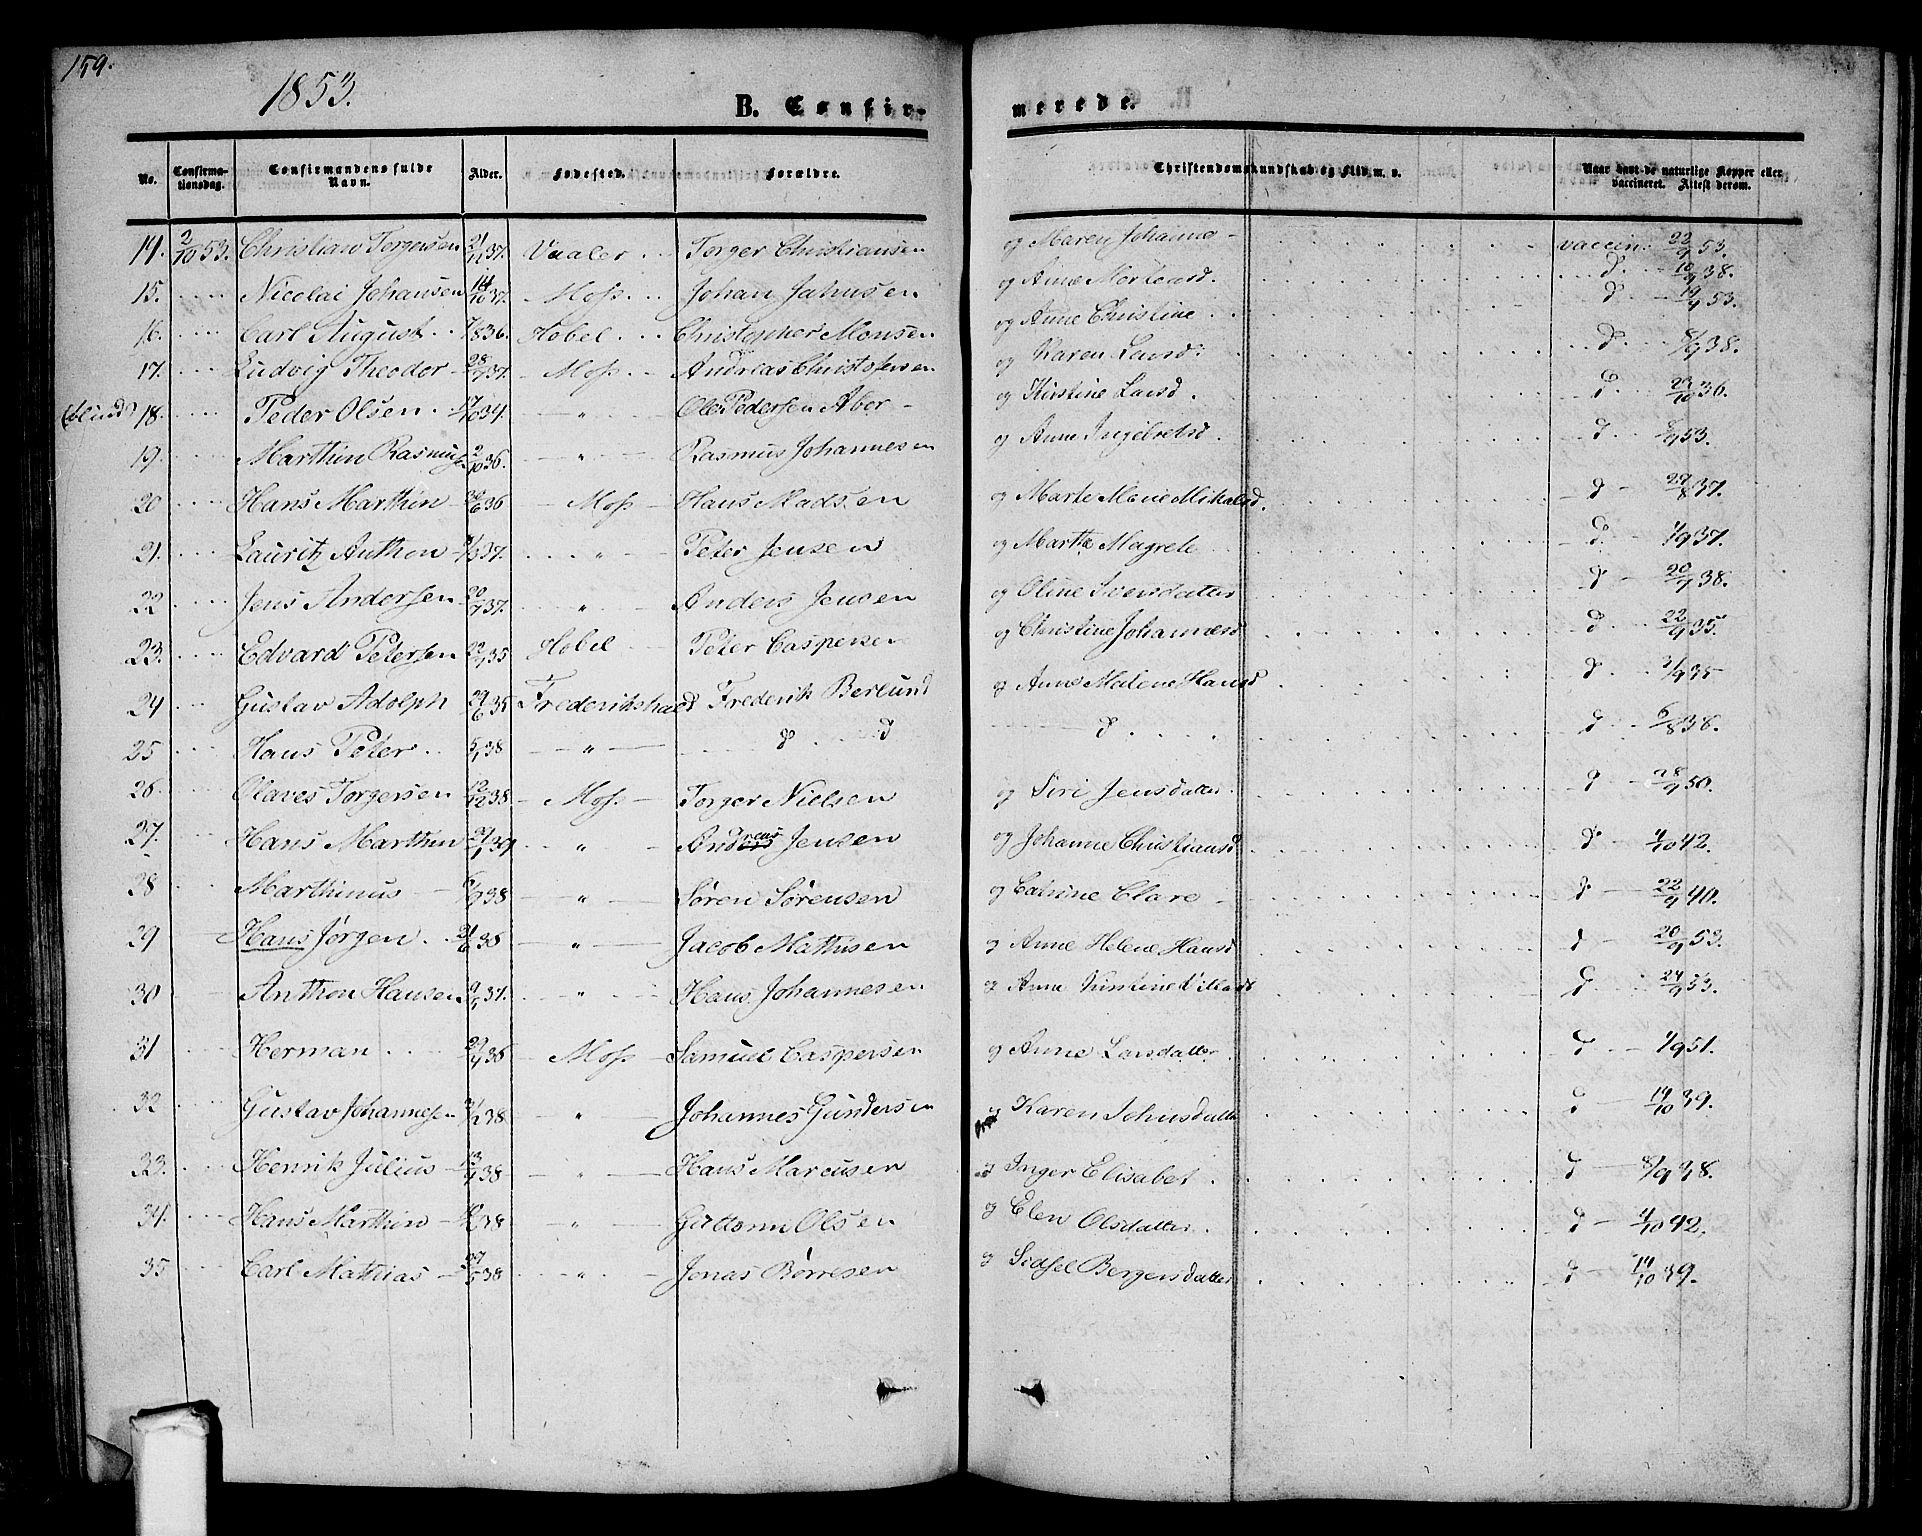 159.
1853.
B. Confir-
merede.
No. Confirmationsdag. Confirmandens fulde Navn. Alder. Fødested. Forældre. Christendomskundskab og Flid m. v. Naar havt de naturlige Kopper eller vaccineret. Attest derom.
14. 2/10 53. Christian Torgersen 37. Vaaler Torger Christiansen og Maren Johanne vaccin: 22/9 53.
15. Nicolai Johansen 14/10 37. Moss Johan og Anne d 10/9 38.
16. Carl August 36. Hobel Christopher Monsen og Anne Christine d 19/9 53.
17. Ludvig Theodor 28/ 37. Moss Andreas og Karen Larsd: d 8/9 38.
(blind) 18. Peder Olsen 17/10 34. " Ole Pedersen Aber og Kirstine Larsd. d 22/10 36.
19. Marthin Rasmusen 2/10 36. " Rasmus Johannesen og Anne Ingebretsd. d 8/9 53.
20 Hans Marthin 36 Moss Hans Madsen og Marte d 29/8 37.
21. Lauritz Anthon 37. " Peter Jensen og Marthe Magrete d 1/9 37.
22 Jens Andersen 37. " Anders Jensen og Oline Svensdatter d 20/ 38.
23. Edvard Petersen 35 Hobel Peter Caspersen og Christine Johannesd d 22/9 35.
24 Gustav Adolph 29/6 35 Frederikshald Frederik Berlund og Anne Malene Hansd d 3/9 35
25 Hans Peter 38 " d d d d 6/8 38.
26. Olaves Torgersen 12/12 38 Moss Torger Nielsen og Siri Jensdatter. d 28/9 50.
27. Hans Marthin 39 " Andreas Jensen og Johanne Christiansd d 4/10 42.
28 Marthinus 38 " Søren Sørensen og Catrine Clare d 22/9 40.
29 Hans Jørgen 38 " Jacob Mathisen og Anne Helene Hansd d 20/9 53.
30 Anthon Hansen 37. " Hans Johannesen og Anne Kirstine d 24/9 53.
31 Herman 36 Moss Samuel Caspersen og Anne Larsdatter. d 1/9 51.
32 Gustav Johannesen 38 " Johannes Gundersen og Karen Johnsdatter d 14/10 39.
33. Henrik Julius 38 " Hans Marcusen og Inger Elisabet d 8/9 38.
34. Hans Marthin 38 " Guttorm Olsen og Elen Olsdatter. d 4/10 42.
35 Carl Mathias 29/5 38 " Jonas Børresen og Sidsel Bergersdatter d 14/10 39.